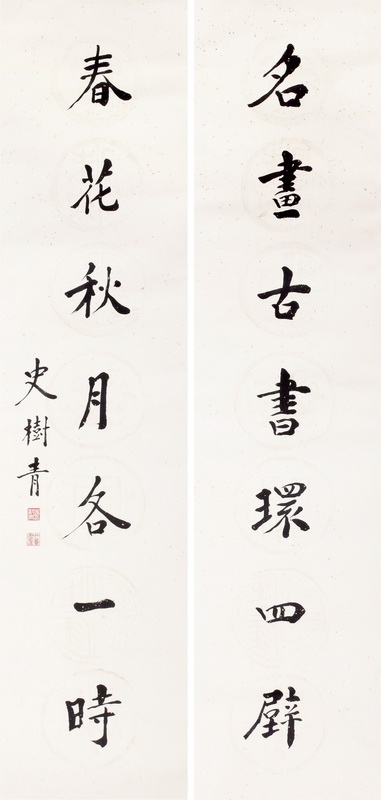 名畫古書環四壁
春花秋月各一時
史樹青